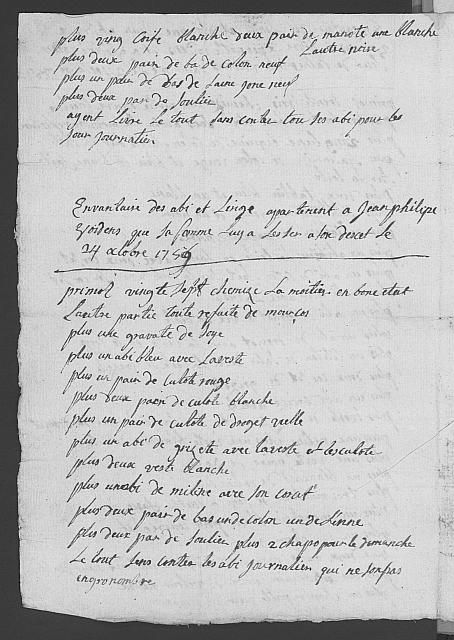 plus ving coife blanche deux pair de manote une blanche
Lautre noire
plus deux pair de ba de coton neuf
plus un pair de bas de Laine jone neuf
plus deux par de soulier
ayent Livre Le tout sans conter tou ses abi pour les
jour journalier
Envantaire des abi et Linge apartenent a Jean philipe
que sa famme Luy a Lesser a son deset Le
24 octobre 1759
primol vingte sept chemize La moitier en bone etat
Lautre partie toute refaite de morços
plus une gravate de soye
plus un abi bleu avec Laveste
plus un pair de culote rouge
plus deux pair de culote blanche
plus un pair de culote de droget velle
plus un abi de grizete avec laveste et lesculote
plus deux veste blanche
plus un abi de milene avec son
plus deux pair de bas un de coton un de Lenne
plus deux par de soulier plus 2 chapo pour le dimanche
Le tout sens conter les abi journalier qui ne son pas
en gro nombre